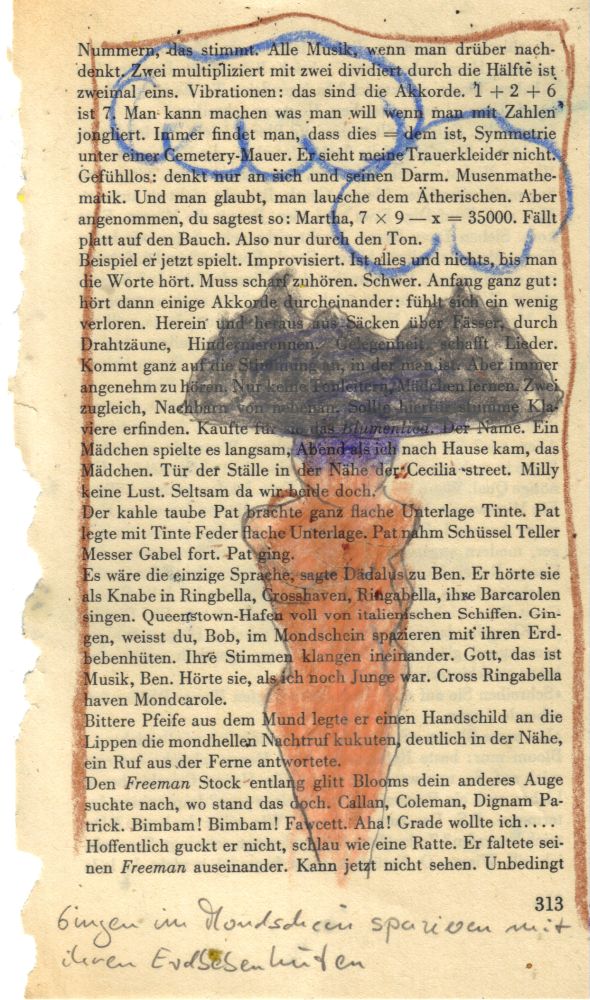 Nummern, das stimmt. Alle Musik, wenn man drüber nach-
denkt. Zwei multipliziert mit zwei dividiert durch die Hälfte ist
zweimal eins. Vibrationen: das sind die Akkorde. 1 + 2 + 6
ist 7. Man kann machen was man will wenn man mit Zahlen
jongliert. Immer findet man, dass dies = dem ist, Symmetrie
unter einer Cemetery-Mauer. Er sieht meine Trauerkleider nicht.
Gefühllos: denkt nur an sich und seinen Darm. Musenmathe-
matik. Und man glaubt, man lausche dem Ätherischen. Aber
angenommen, du sagtest so: Martha, 7 × 9 — x = 35000. Fällt
platt auf den Bauch. Also nur durch den Ton.
Beispiel er jetzt spielt. Improvisiert. Ist alles und nichts, bis man
die Worte hört. Muss scharf zuhören. Schwer. Anfang ganz gut:
hört dann einige Akkorde durcheinander: fühlt sich ein wenig
verloren. Herein und heraus aus Säcken über Fässer, durch
Drahtzäune, Hindernisrennen. Gelegenheit schafft Lieder.
Kommt ganz auf die Stimmung an, in der man ist. Aber immer
angenehm zu hören. Nur keine Tonleitern, Mädchen lernen. Zwei
zugleich, Nachbarn von nebenan. Sollte hierfür stumme Kla-
viere erfinden. Kaufte für sie das Blumenlied. Der Name. Ein
Mädchen spielte es langsam, Abend als ich nach Hause kam, das
Mädchen. Tür der Ställe in der Nähe der Cecilia-street. Milly
keine Lust. Seltsam da wir beide doch.
Der kahle taube Pat brachte ganz flache Unterlage Tinte. Pat
legte mit Tinte Feder flache Unterlage. Pat nahm Schüssel Teller
Messer Gabel fort. Pat ging.
Es wäre die einzige Sprache, sagte Dädalus zu Ben. Er hörte sie
als Knabe in Ringbella, Crosshaven, Ringabella, ihre Barcarolen
singen. Queenstown-Hafen voll von italienischen Schiffen. Gin-
gen, weisst du, Bob, im Mondschein spazieren mit ihren Erd-
bebenhüten. Ihre Stimmen klangen ineinander. Gott, das ist
Musik, Ben. Hörte sie, als ich noch Junge war. Cross Ringabella
haven Mondcarole.
Bittere Pfeife aus dem Mund legte er einen Handschild an die
Lippen die mondhellen Nachtruf kukuten, deutlich in der Nähe,
ein Ruf aus der Ferne antwortete.
Den Freeman Stock entlang glitt Blooms dein anderes Auge
suchte nach, wo stand das doch. Callan, Coleman, Dignam Pa-
trick. Bimbam! Bimbam! Fawcett. Aha! Grade wollte ich....
Hoffentlich guckt er nicht, schlau wie eine Ratte. Er faltete sei-
nen Freeman auseinander. Kann jetzt nicht sehen. Unbedingt
313
Gingen im Mondschein spazieren mit
ihren Erdbebenhüten